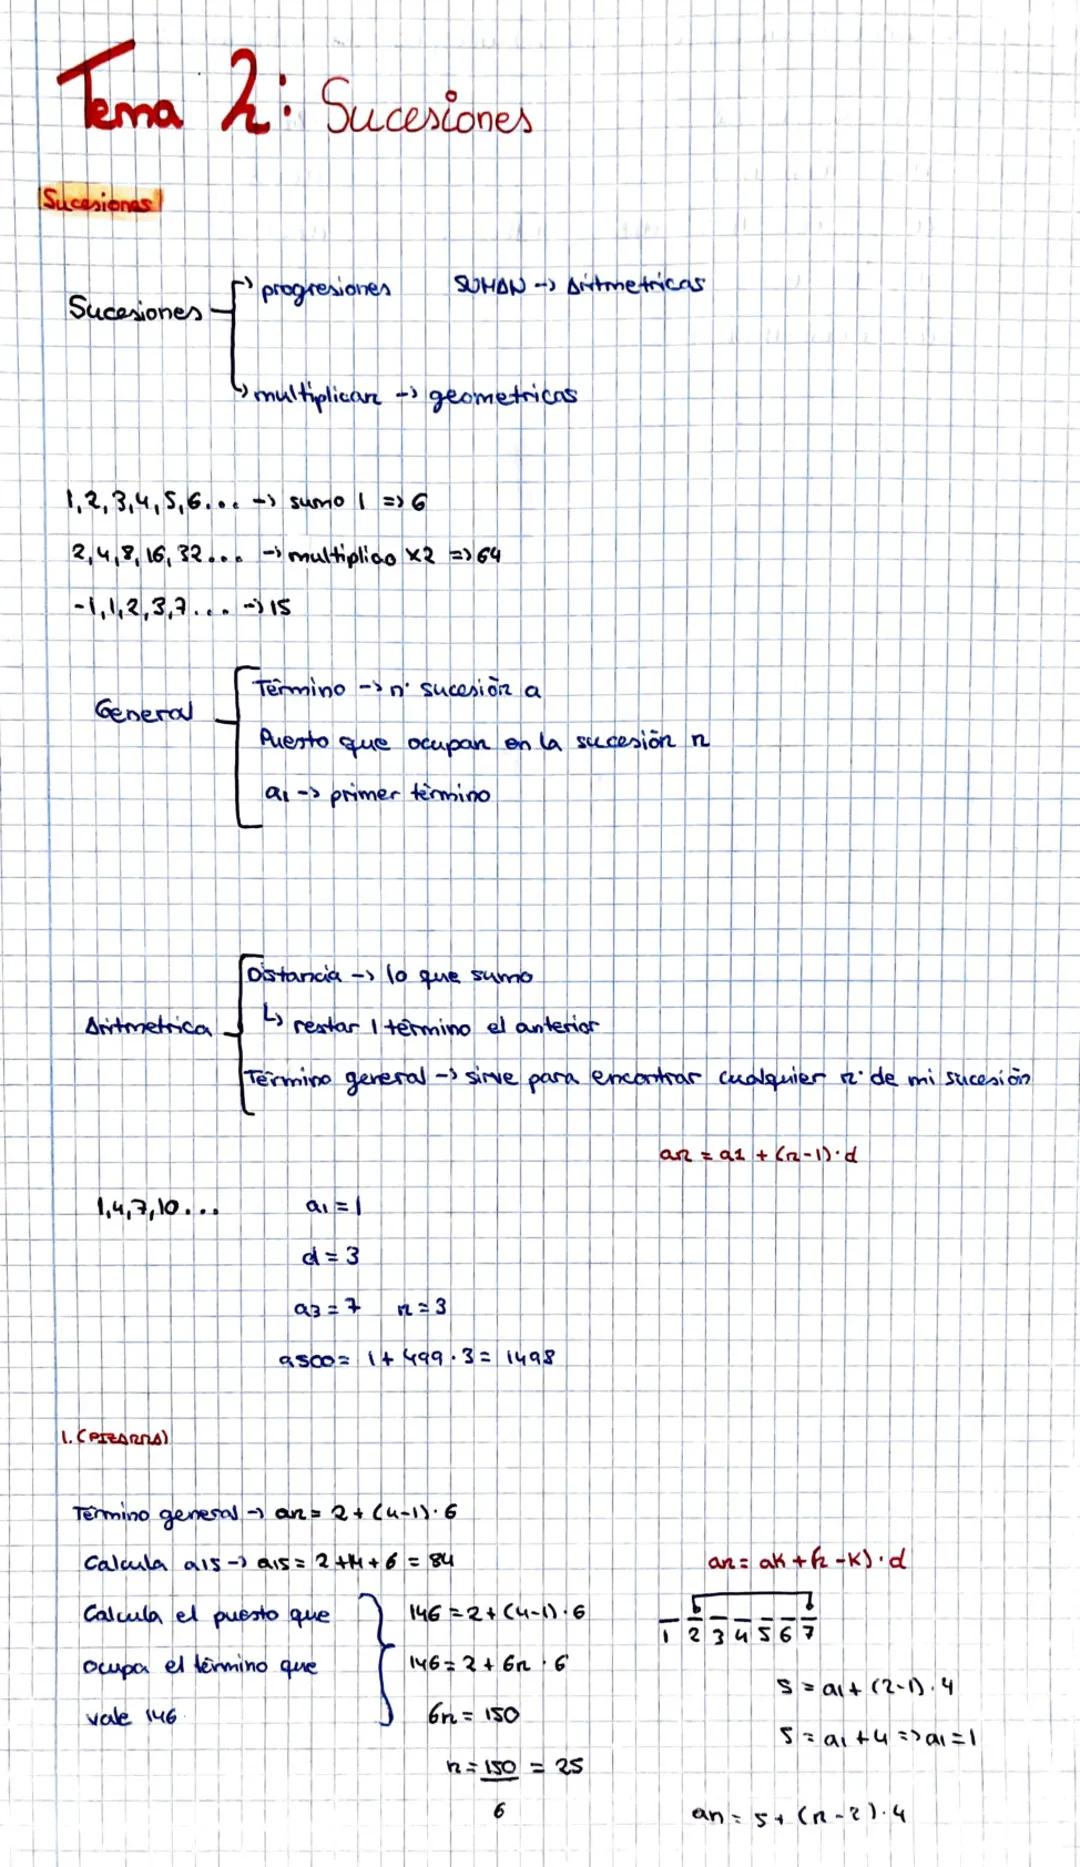 Tema 2: Sucesiones
Sucesiones
Sucesiones
progresiones SUMAN -> Aritmetricas
multiplicar -> geometricas
1,2,3,4,5,6... -> sumo 1 => 6
2,4,8,16,32... -> multiplico x2 => 64
-1,1,2,3,7... -> 15
General
Término -> nº sucesión a
Puesto que ocupan en la sucesión n
a1 -> primer término
Aritmetrica
Distancia -> lo que sumo
↳ restar 1 término el anterior
Término general -> sirve para encontrar cualquier nº de mi sucesión
an = a1 + (n-1)·d
1,4,7,10... a1 = 1
d = 3
a3 = 7 n = 3
a500 = 1 + 499 · 3 = 1498
1. (PIZARRA)
Término general -> an = 2 + (4-1)·6
Calcula a15 -> a15 = 2+14+6 = 84
Calcula el puesto que
ocupa el término que
vale 146
146 = 2 + (4-1)·6
146 = 2 + 6n · 6
6n = 150
n = 150 = 25
6
an = ak + (n-k)·d
1 2 3 4 5 6 7
5 = a1 + (2-1).4
5 = a1 + 4 => a1 = 1
an = 5 + (n-2).4